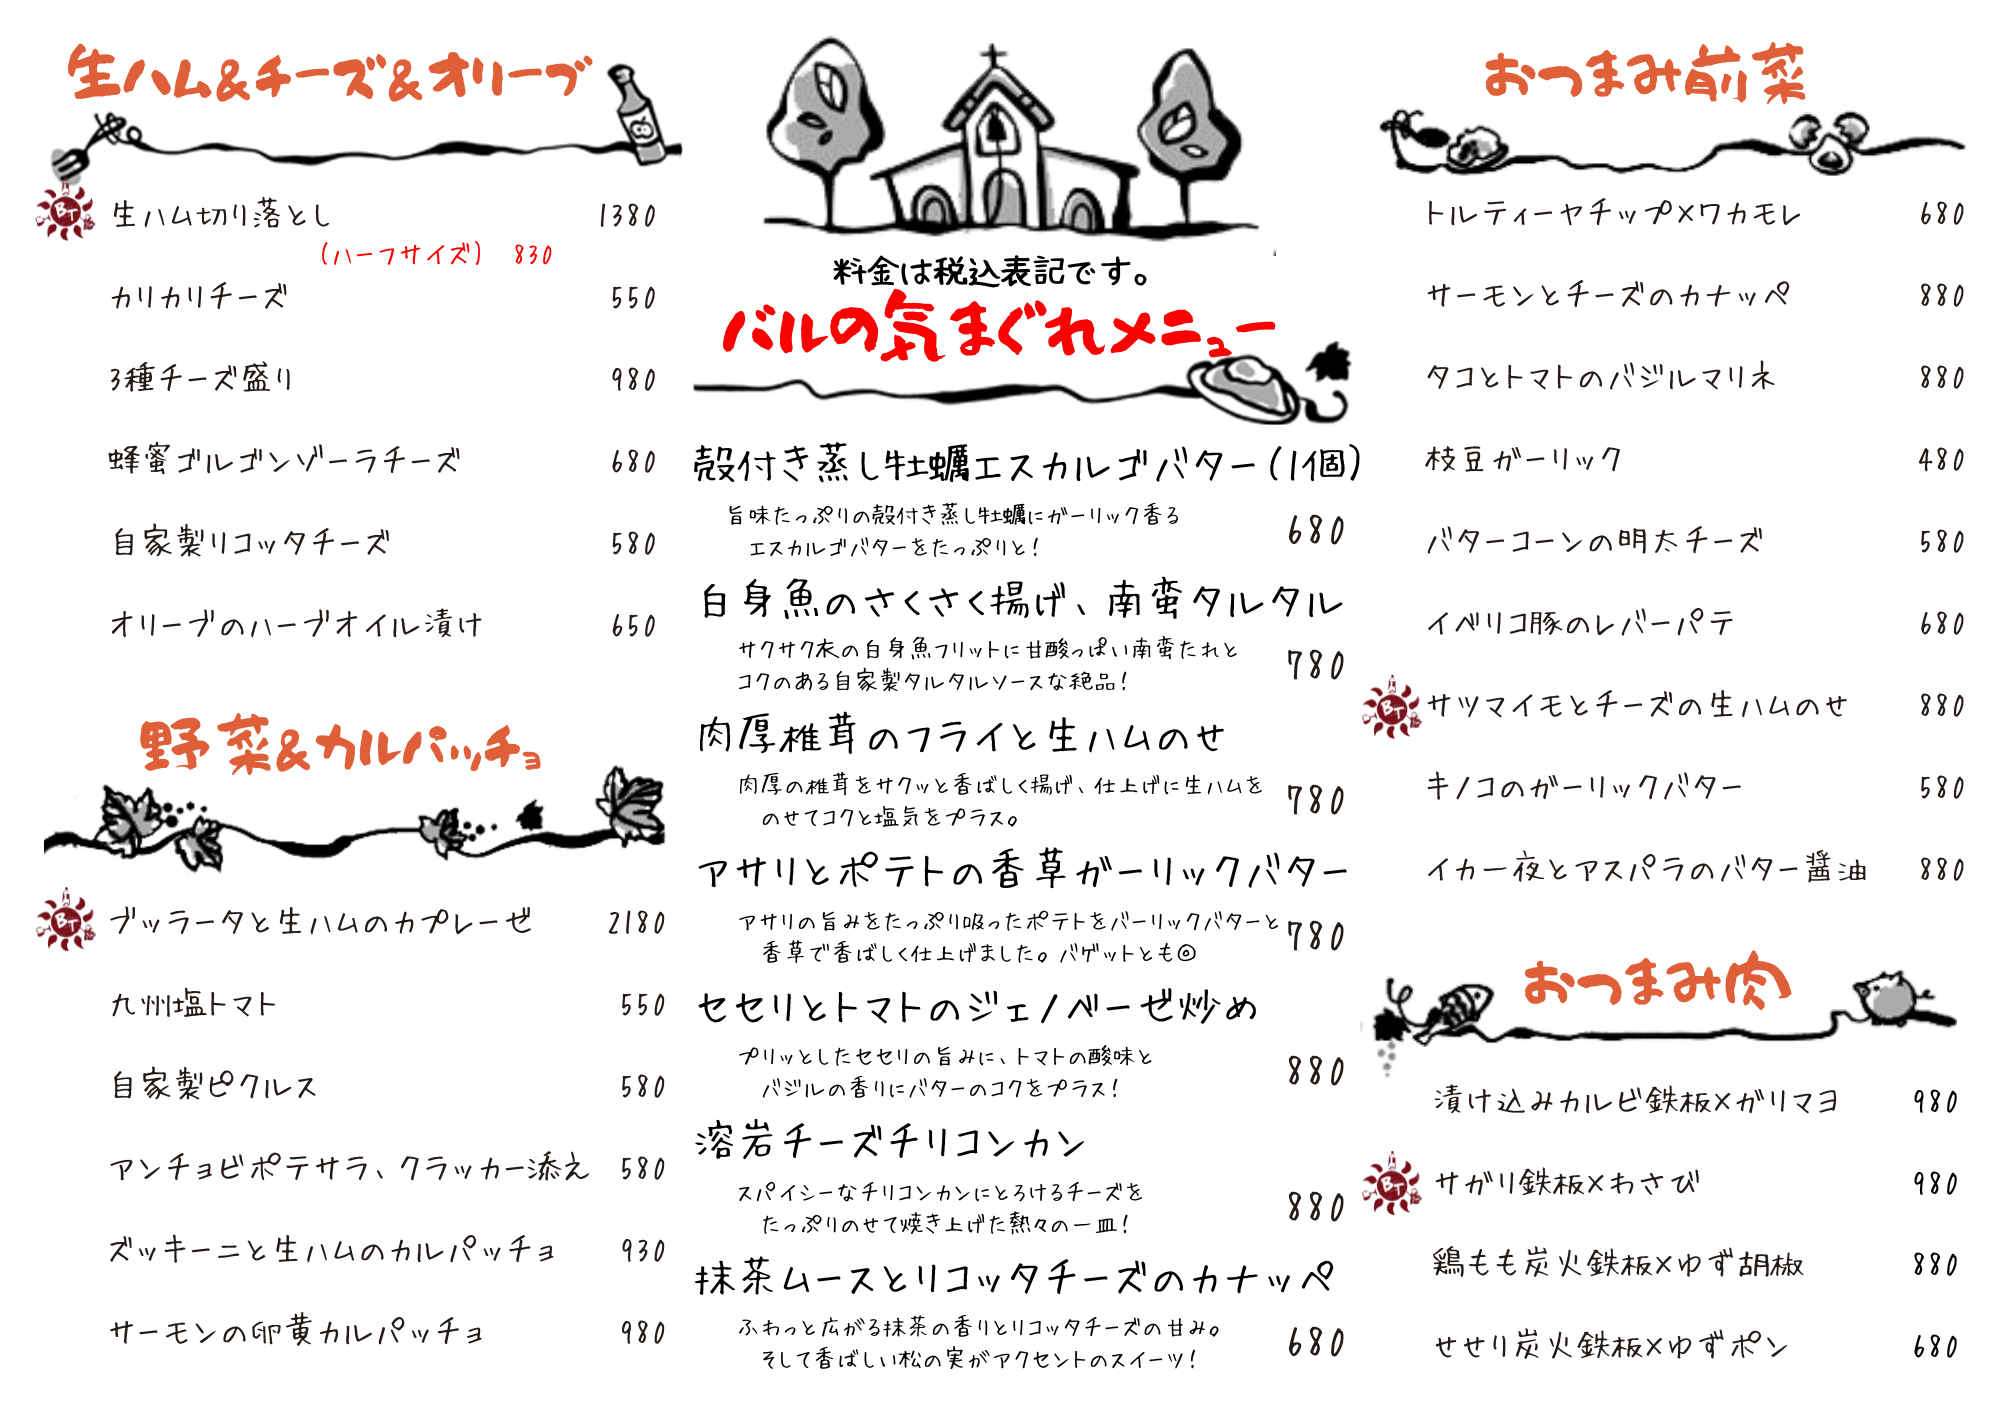 生ハム&チーズ&オリーブ
BT
生ハム切り落とし 1380
(ハーフサイズ) 830
カリカリチーズ 550
3種チーズ盛り 980
蜂蜜ゴルゴンゾーラチーズ 680
自家製リコッタチーズ 580
オリーブのハーブオイル漬け 650
野菜&カルパッチョ
BT
ブッラータと生ハムのカプレーゼ 2180
九州塩トマト 550
自家製ピクルス 580
アンチョビポテサラ、クラッカー添え 580
ズッキーニと生ハムのカルパッチョ 930
サーモンの卵黄カルパッチョ 980
料金は税込表記です。
バルの気まぐれメニュー
殻付き蒸し牡蠣エスカルゴバター(1個)
旨味たっぷりの殻付き蒸し牡蠣にガーリック香る
エスカルゴバターをたっぷりと!
680
白身魚のさくさく揚げ、南蛮タルタル
サクサク衣の白身魚フリットに甘酸っぱい南蛮たれと
コクのある自家製タルタルソースな絶品!
780
肉厚椎茸のフライと生ハムのせ
肉厚の椎茸をサクッと香ばしく揚げ、仕上げに生ハムを
のせてコクと塩気をプラス。
780
アサリとポテトの香草ガーリックバター
アサリの旨みをたっぷり吸ったポテトをバーリックバターと
香草で香ばしく仕上げました。バゲットとも◎
780
セセリとトマトのジェノベーゼ炒め
プリッとしたセセリの旨みに、トマトの酸味と
バジルの香りにバターのコクをプラス!
880
溶岩チーズチリコンカン
スパイシーなチリコンカンにとろけるチーズを
たっぷりのせて焼き上げた熱々の一皿!
880
抹茶ムースとリコッタチーズのカナッペ
ふわっと広がる抹茶の香りとリコッタチーズの甘み。
そして香ばしい松の実がアクセントのスイーツ!
680
おつまみ前菜
トルティーヤチップ×ワカモレ 680
サーモンとチーズのカナッペ 880
タコとトマトのバジルマリネ 880
枝豆ガーリック 480
バターコーンの明太チーズ 580
イベリコ豚のレバーパテ 680
BT
サツマイモとチーズの生ハムのせ 880
キノコのガーリックバター 580
イカ一夜とアスパラのバター醤油 880
おつまみ肉
漬け込みカルビ鉄板×ガリマヨ 980
BT
サガリ鉄板×わさび 980
鶏もも炭火鉄板×ゆず胡椒 880
せせり炭火鉄板×ゆずポン 680